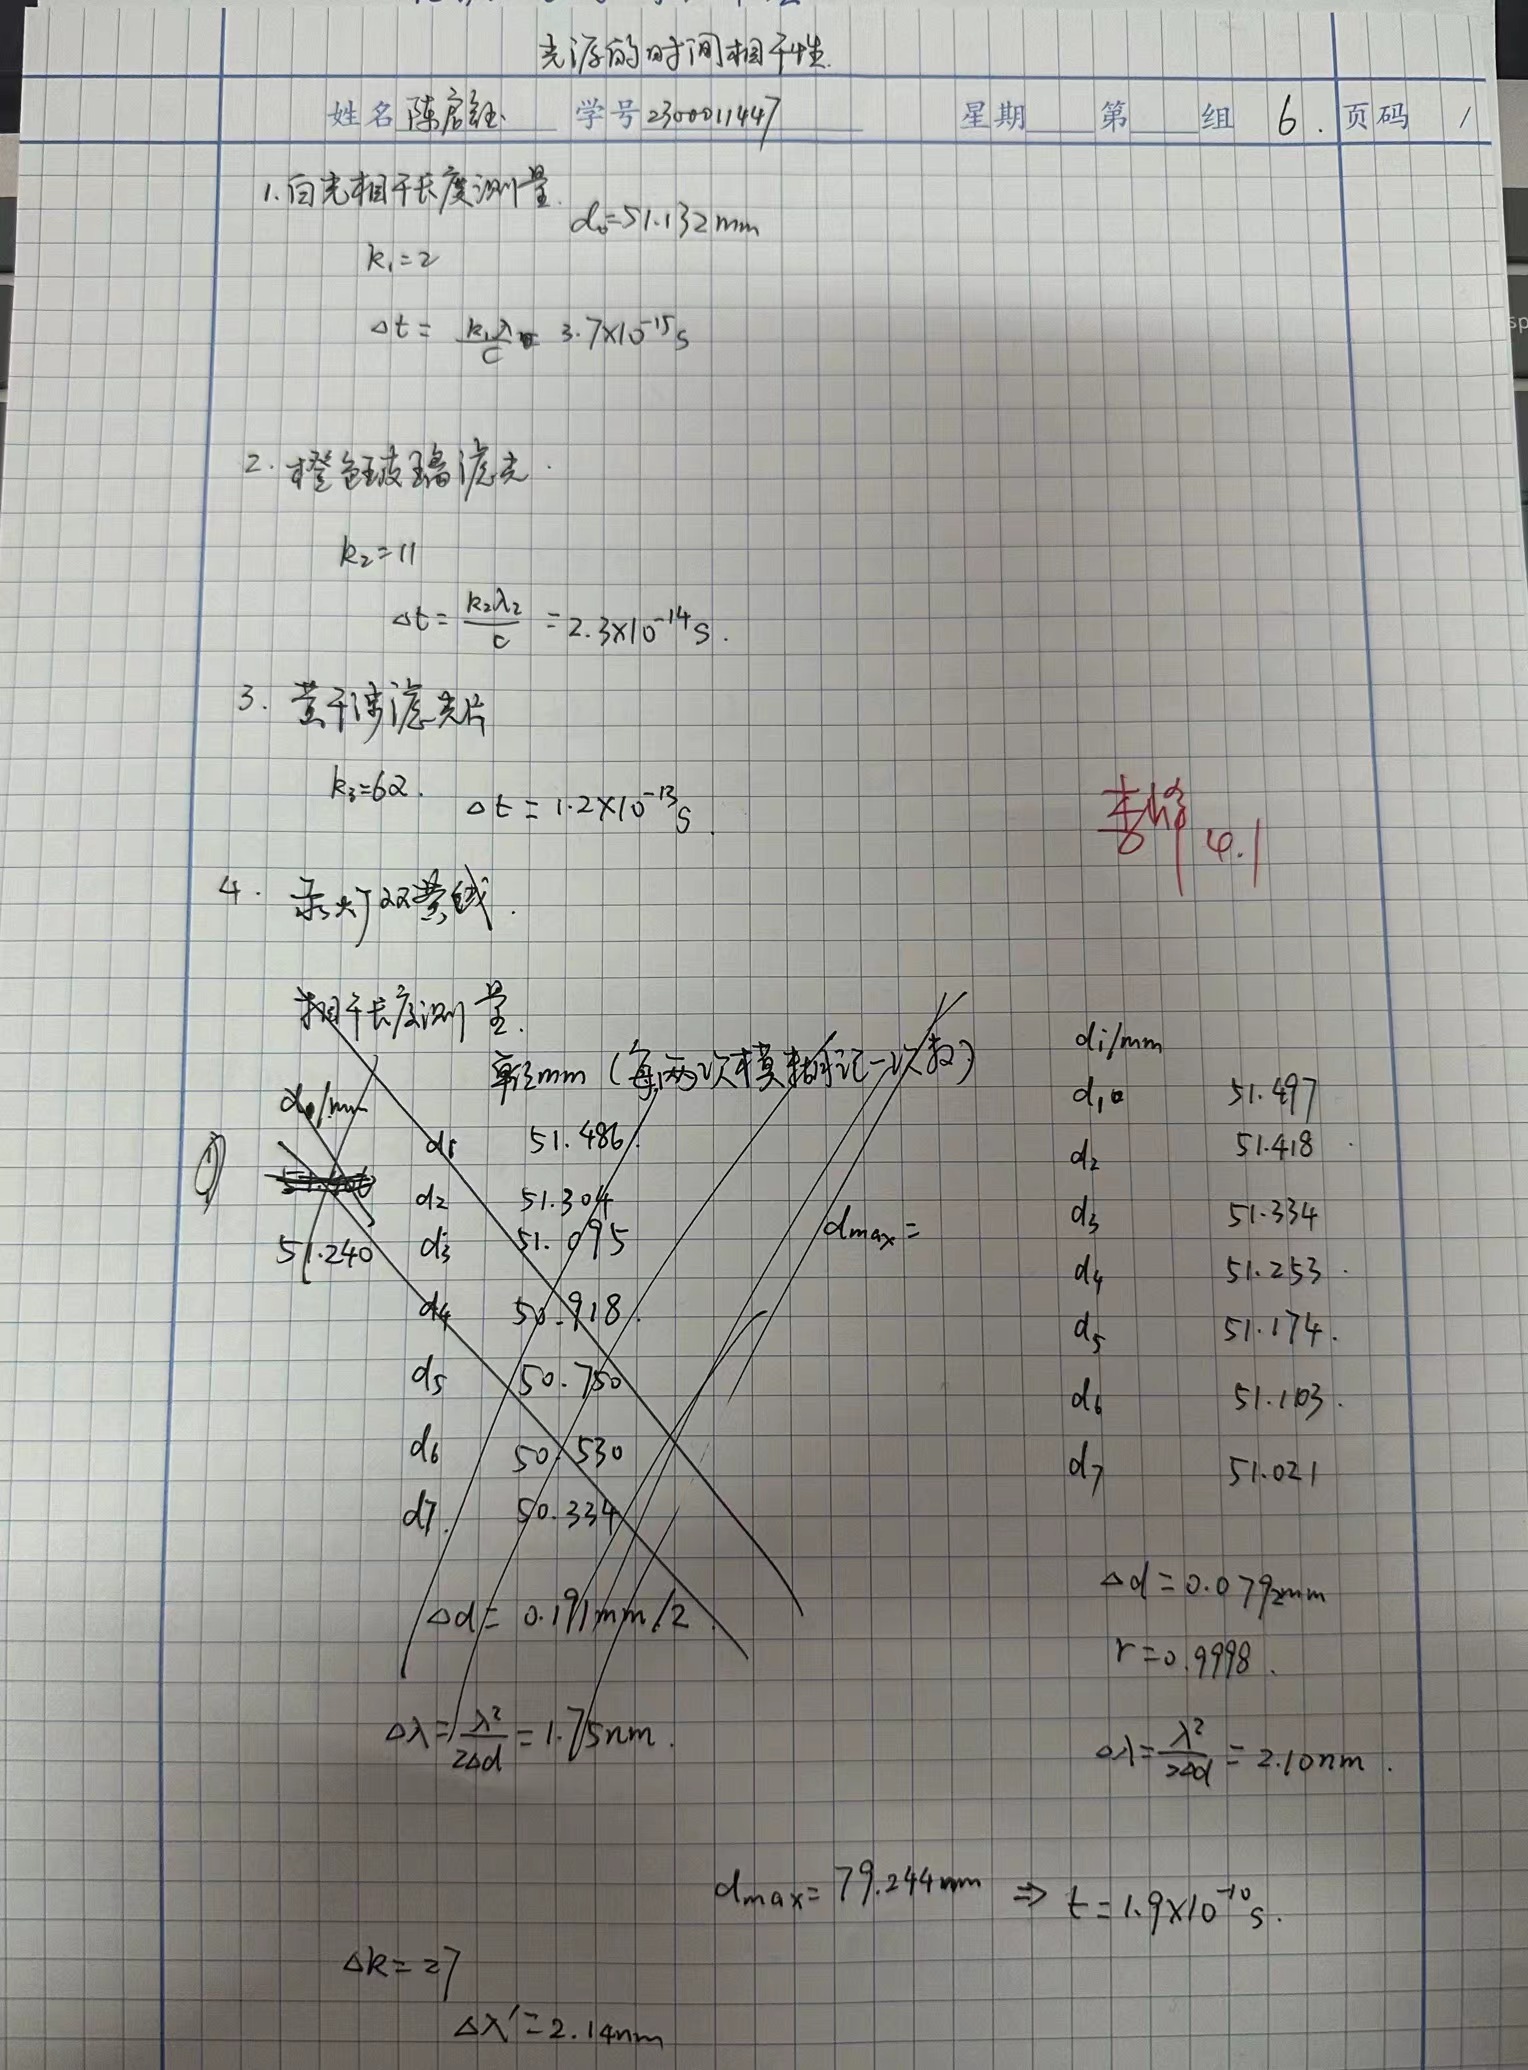 光源的时间相干性.
姓名 陈启钰 学号 2300011447 星期 第 组 6. 页码 1
1.白光相干长度测量.
d₀=51.132mm
k₁=2
Δt = k₁λ/c = 3.7×10⁻¹⁵s
2. 橙色玻璃滤光.
k₂=11
Δt = k₂λ₂/c = 2.3×10⁻¹⁴s.
3. 黄干涉滤光片
k₃=62. Δt = 1.2×10⁻¹³s.
4.1
4. 汞灯双黄线.
相干长度测量.
单位mm (每两次模糊记一次数)
d₀/mm
① 51.240
d₁ 51.486
d₂ 51.304
d₃ 51.095
d₄ 50.918
d₅ 50.750
d₆ 50.530
d₇ 50.334
dmax =
Δd = 0.191mm/2
Δλ = λ²/2Δd = 1.75nm.
di/mm
d₁ 51.497
d₂ 51.418
d₃ 51.334
d₄ 51.253
d₅ 51.174.
d₆ 51.103.
d₇ 51.021
Δd = 0.0792mm
r = 0.9998.
Δλ = λ²/2Δd = 2.10nm.
dmax = 79.244mm ⇒ t = 1.9×10⁻¹⁰s.
Δk = 27
Δλ' = 2.14nm